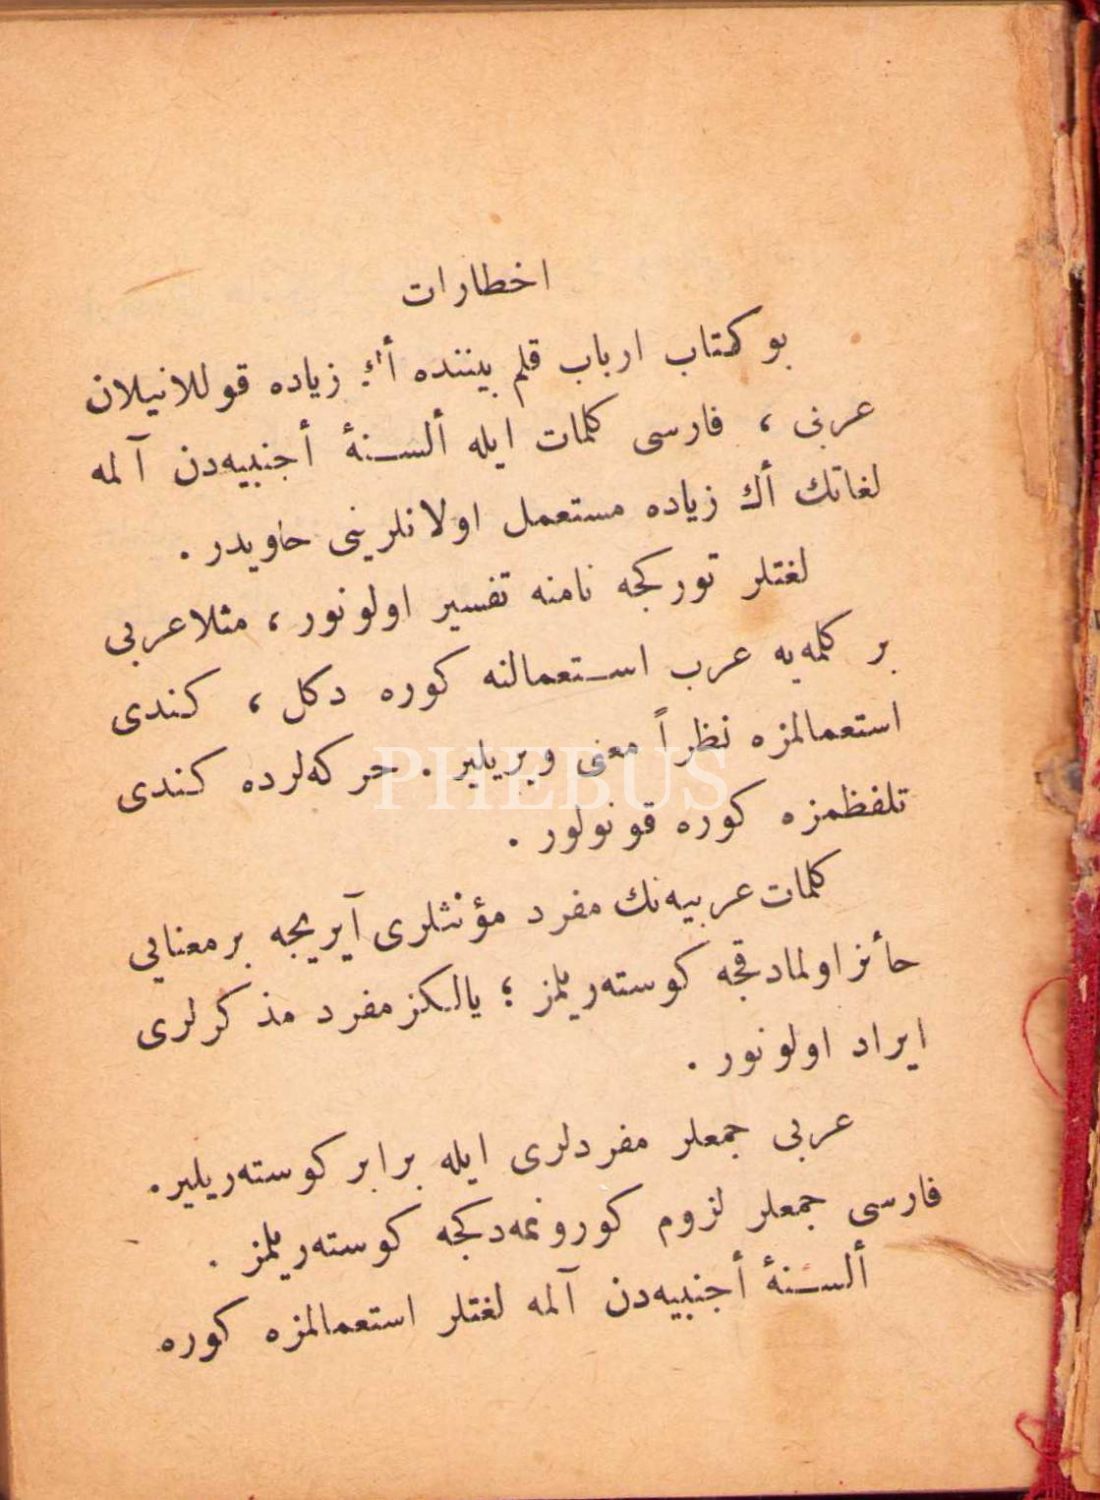 اخطارات
بو كتاب ارباب قلم بیننده أڭ زیاده قوللانیلان
عربی ، فارسی كلمات ایله ألسـنۀ أجنبیه‌دن آلمه
لغاتك أك زیاده مستعمل اولانلرینی حاویدر .
لغتلر توركجه نامنه تفسیر اولونور ، مثلا عربی
بر كلمه‌یه عرب اسـتعمالنه كوره دكل ، كندی
استعمالمزه نظراً معنی ویریلیر . حركه‌لرده كندی
تلفظمزه كوره قونولور .
كلمات عربیه‌نك مفرد مؤنثلری آیریجه بر معنایی
حائز اولمادقجه كوسته‌ریلمز ؛ یالـكز مفرد مذكرلری
ایراد اولونور .
عربی جمعلر مفردلری ایله برابر كوسته‌ریلیر.
فارسی جمعلر لزوم كورونمه‌دكجه كوسته‌ریلمز .
ألسـنۀ أجنبیه‌دن آلمه لغتلر استعمالمزه كوره
PHEBUS